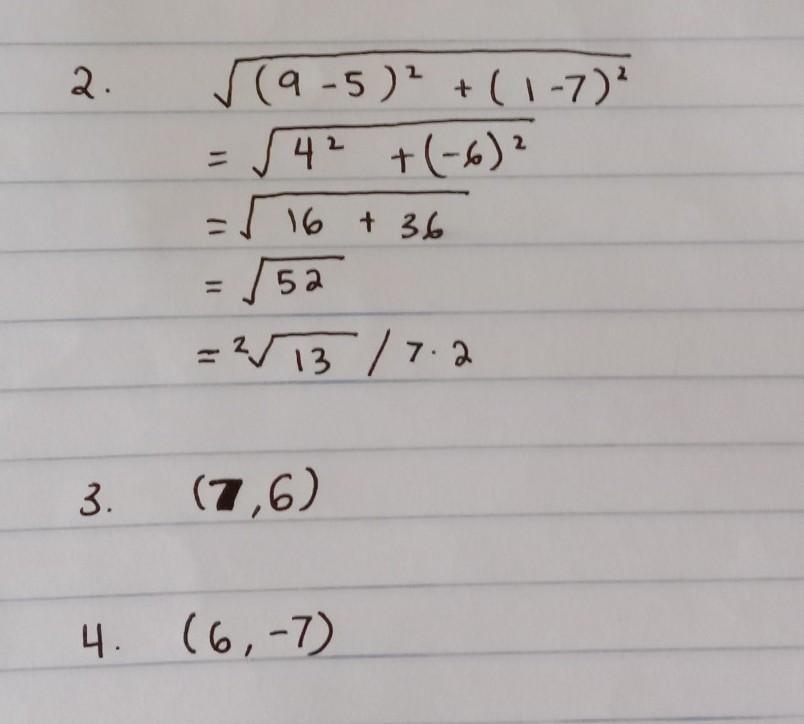 2. √(9-5)² + (1-7)²
= √4² + (-6)²
= √16 + 36
= √52
= ²√13 / 7.2
3. (7,6)
4. (6,-7)